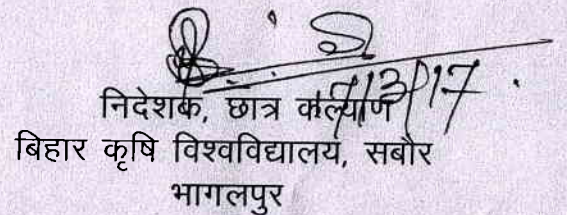 निदेशक, छात्र कल्याण
बिहार कृषि विश्वविद्यालय, सबौर
भागलपुर